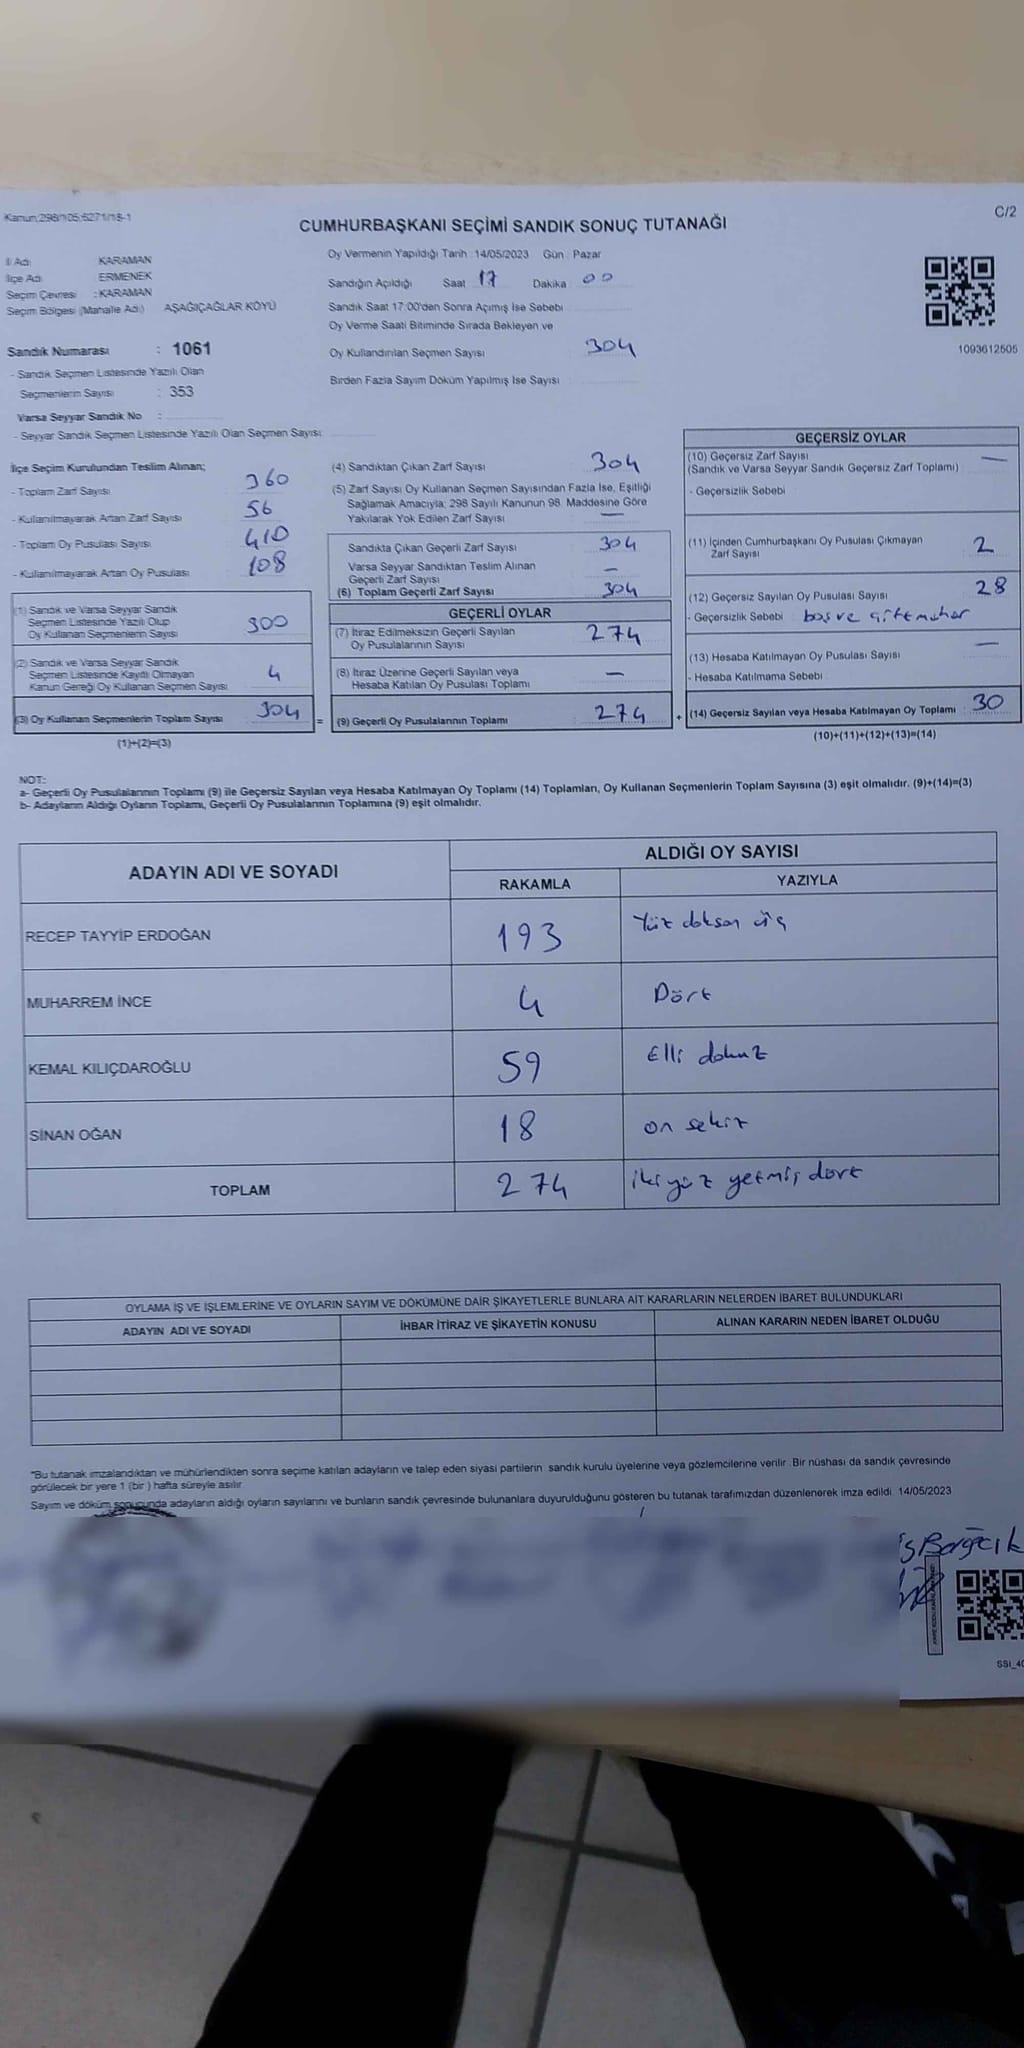 Kanun;298/105;6271/18-1
C/2
CUMHURBAŞKANI SEÇİMİ SANDIK SONUÇ TUTANAĞI
İl Adı : KARAMAN
İlçe Adı : ERMENEK
Seçim Çevresi : KARAMAN
Seçim Bölgesi (Mahalle Adı) AŞAĞIÇAĞLAR KÖYÜ
Sandık Numarası : 1061
- Sandık Seçmen Listesinde Yazılı Olan
Seçmenlerin Sayısı : 353
Varsa Seyyar Sandık No :
- Seyyar Sandık Seçmen Listesinde Yazılı Olan Seçmen Sayısı:
Oy Vermenin Yapıldığı Tarih : 14/05/2023 Gün : Pazar
Sandığın Açıldığı Saat 17 Dakika 00
Sandık Saat 17:00'den Sonra Açımış İse Sebebi
Oy Verme Saati Bitiminde Sırada Bekleyen ve
Oy Kullandırılan Seçmen Sayısı 304
Birden Fazla Sayım Döküm Yapılmış İse Sayısı
1093612505
İlçe Seçim Kurulundan Teslim Alınan;
- Toplam Zarf Sayısı 360
- Kullanılmayarak Artan Zarf Sayısı 56
- Toplam Oy Pusulası Sayısı 410
- Kullanılmayarak Artan Oy Pusulası 108
(1) Sandık ve Varsa Seyyar Sandık
Seçmen Listesinde Yazılı Olup
Oy Kullanan Seçmenlerin Sayısı 300
(2) Sandık ve Varsa Seyyar Sandık
Seçmen Listesinde Kayıtlı Olmayan
Kanun Gereği Oy Kullanan Seçmen Sayısı 4
(3) Oy Kullanan Seçmenlerin Toplam Sayısı 304 =
(1)+(2)=(3)
(4) Sandıktan Çıkan Zarf Sayısı 304
(5) Zarf Sayısı Oy Kullanan Seçmen Sayısından Fazla İse, Eşitliği
Sağlamak Amacıyla; 298 Sayılı Kanunun 98. Maddesine Göre
Yakılarak Yok Edilen Zarf Sayısı —
Sandıkta Çıkan Geçerli Zarf Sayısı 304
Varsa Seyyar Sandıktan Teslim Alınan
Geçerli Zarf Sayısı —
(6) Toplam Geçerli Zarf Sayısı 304
GEÇERLİ OYLAR
(7) İtiraz Edilmeksizin Geçerli Sayılan
Oy Pusulalarının Sayısı 274
(8) İtiraz Üzerine Geçerli Sayılan veya
Hesaba Katılan Oy Pusulası Toplamı —
(9) Geçerli Oy Pusulalarının Toplamı 274 +
GEÇERSİZ OYLAR
(10) Geçersiz Zarf Sayısı —
(Sandık ve Varsa Seyyar Sandık Geçersiz Zarf Toplamı)
- Geçersizlik Sebebi
(11) İçinden Cumhurbaşkanı Oy Pusulası Çıkmayan
Zarf Sayısı 2
(12) Geçersiz Sayılan Oy Pusulası Sayısı 28
- Geçersizlik Sebebi : boş ve
(13) Hesaba Katılmayan Oy Pusulası Sayısı —
- Hesaba Katılmama Sebebi
(14) Geçersiz Sayılan veya Hesaba Katılmayan Oy Toplamı 30
(10)+(11)+(12)+(13)=(14)
NOT:
a- Geçerli Oy Pusulalarının Toplamı (9) ile Geçersiz Sayılan veya Hesaba Katılmayan Oy Toplamı (14) Toplamları, Oy Kullanan Seçmenlerin Toplam Sayısına (3) eşit olmalıdır. (9)+(14)=(3)
b- Adayların Aldığı Oyların Toplamı, Geçerli Oy Pusulalarının Toplamına (9) eşit olmalıdır.
ADAYIN ADI VE SOYADI
ALDIĞI OY SAYISI
RAKAMLA YAZIYLA
RECEP TAYYİP ERDOĞAN 193 Yüz doksan üç
MUHARREM İNCE 4 Dört
KEMAL KILIÇDAROĞLU 59 Elli dokuz
SİNAN OĞAN 18 on sekiz
TOPLAM 274 iki yüz yetmiş dört
OYLAMA İŞ VE İŞLEMLERİNE VE OYLARIN SAYIM VE DÖKÜMÜNE DAİR ŞİKAYETLERLE BUNLARA AİT KARARLARIN NELERDEN İBARET BULUNDUKLARI
ADAYIN ADI VE SOYADI İHBAR İTİRAZ VE ŞİKAYETİN KONUSU ALINAN KARARIN NEDEN İBARET OLDUĞU
*Bu tutanak imzalandıktan ve mühürlendikten sonra seçime katılan adayların ve talep eden siyasi partilerin sandık kurulu üyelerine veya gözlemcilerine verilir. Bir nüshası da sandık çevresinde
görülecek bir yere 1 (bir ) hafta süreyle asılır.
Sayım ve döküm sonucunda adayların aldığı oyların sayılarını ve bunların sandık çevresinde bulunanlara duyurulduğunu gösteren bu tutanak tarafımızdan düzenlenerek imza edildi. 14/05/2023
SSI_40